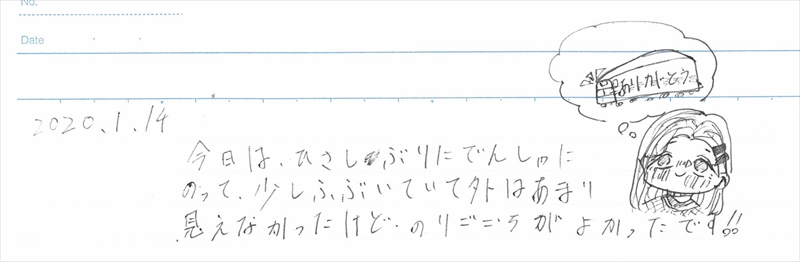 No.
Date
ありがとう
2020.1.14
今日は、ひさしぶりにでんしゃに
のって、少しふぶいていて外はあまり
見えなかったけど、のりごこちがよかったです!!